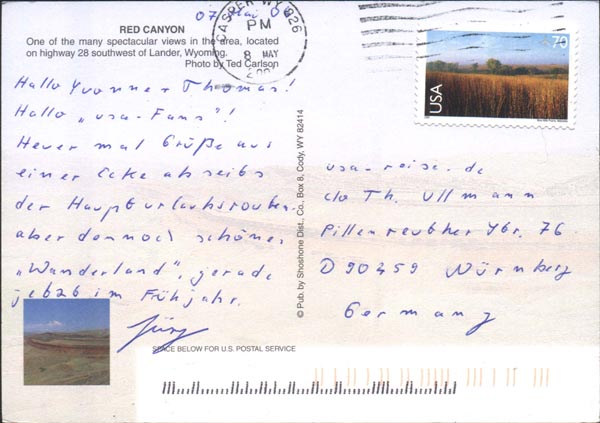 07 Mai 0
CASPER WY 826
PM
8 MAY
RED CANYON
One of the many spectacular views in the area, located
on highway 28 southwest of Lander, Wyoming.
Photo by Ted Carlson
70
USA
Hallo Yvonne + Thomas!
Hallo „usa-Fans"!
Heuer mal Grüße aus
einer Ecke abseits
der Haupturlaubsrouten.
aber dennoch schönes
„Wanderland", gerade
jetzt im Frühjahr.
Jürg
© Pub. by Shoshone Dist., Co., Box 8, Cody, WY 82414
usa-reise.de
c/o Th. Ullmann
Pillenreuther Str. 76
D 90459 Nürnberg
Germany
SPACE BELOW FOR U.S. POSTAL SERVICE